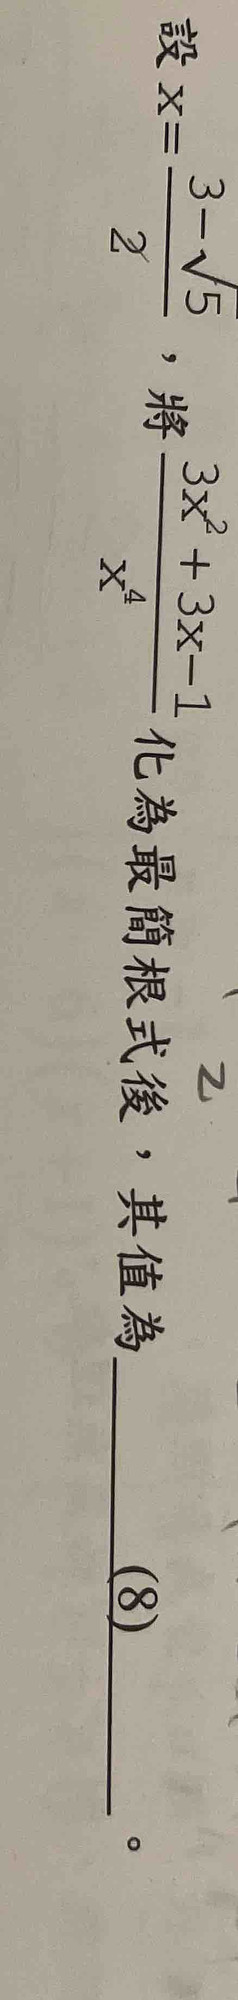 設 x = \frac{3-\sqrt{5}}{2}，將 \frac{3x^2+3x-1}{x^4} 化為最簡根式後，其值為 (8) 。
2